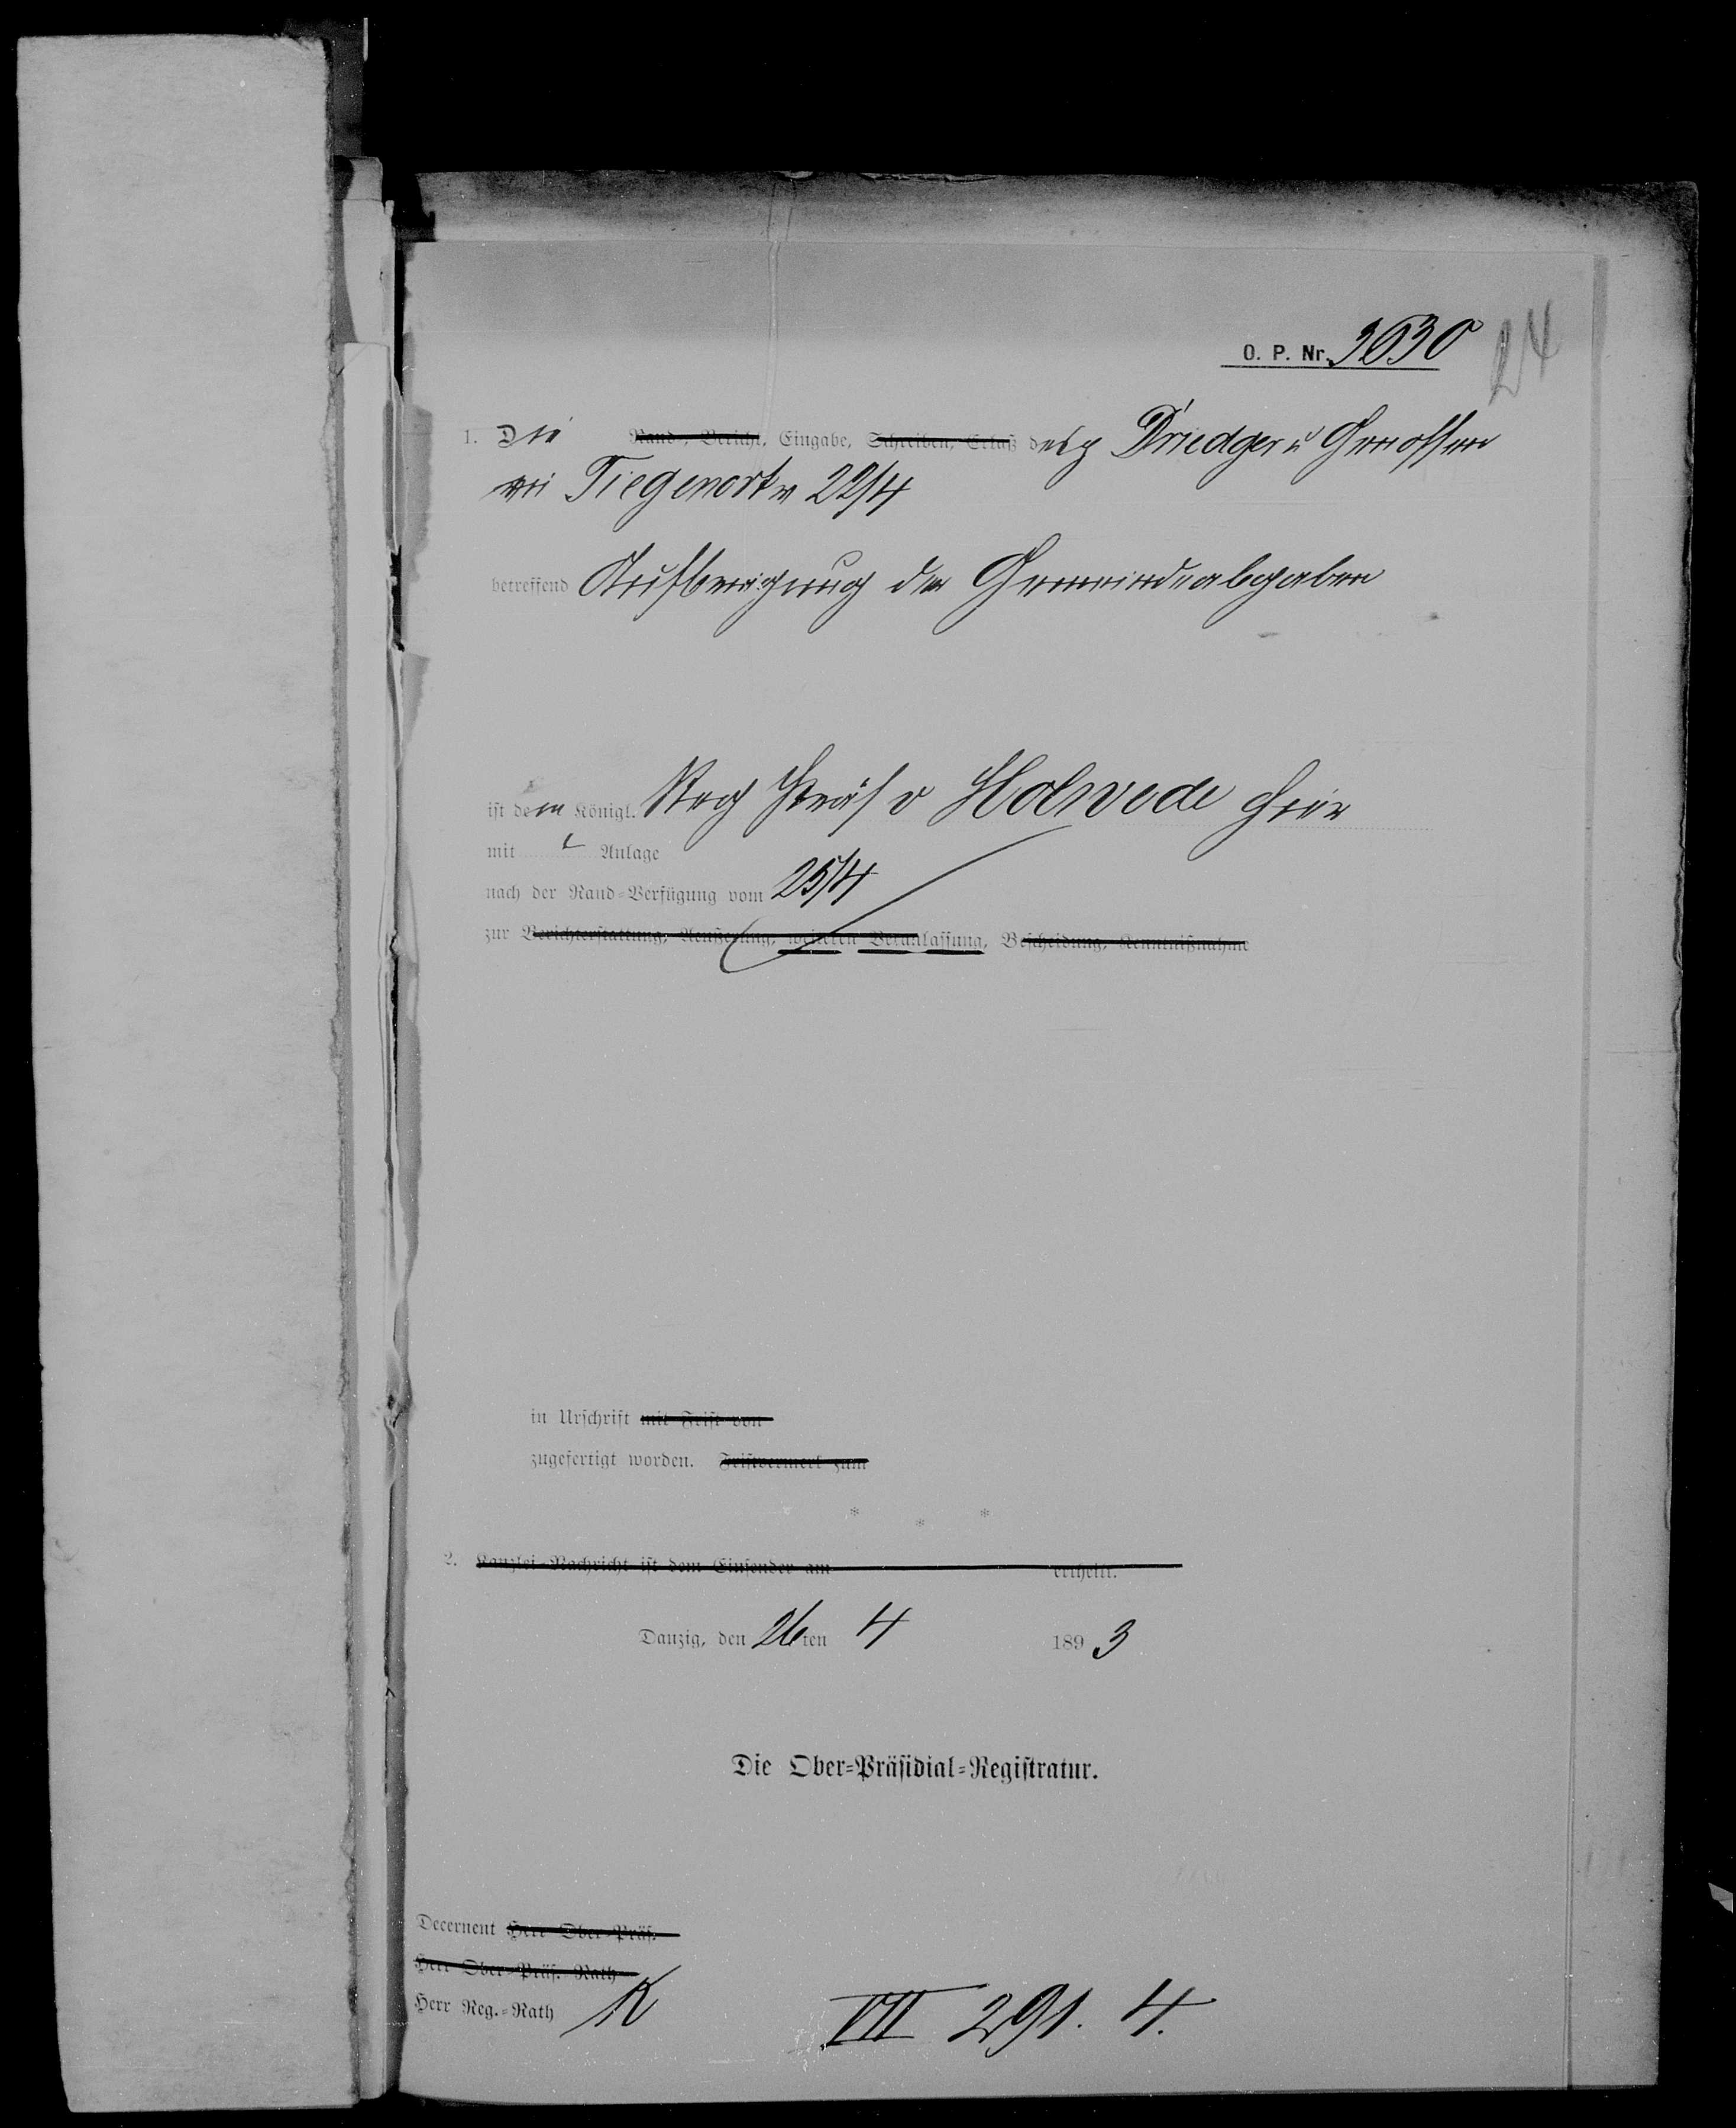 O. P. Nr. 3630
24
1. Die Rand-, Bericht, Eingabe, Schreiben, Erlaß des p Driedger u Genossen
Tiegenort v 22/4
betreffend Aufbringung der Gemeindeabgaben
ist dem Königl. Reg Präs v Holwede hier
mit Anlage
nach der Rand-Verfügung vom 25/4
zur Berichterstattung, Aeußerung, weiteren Veranlassung, Bescheidung, Kenntnißnahme
in Urschrift mit Frist von
zugefertigt worden. Fristvermerk zum
* * *
2. Kanzlei-Nachricht ist dem Einsender am ertheilt.
Danzig, den 26ten 4 1893
Die Ober-Präsidial-Registratur.
Decernent Herr Ober-Präs.
Herr Ober-Präs.-Rath
Herr Reg.-Rath R
VII 291. 4.